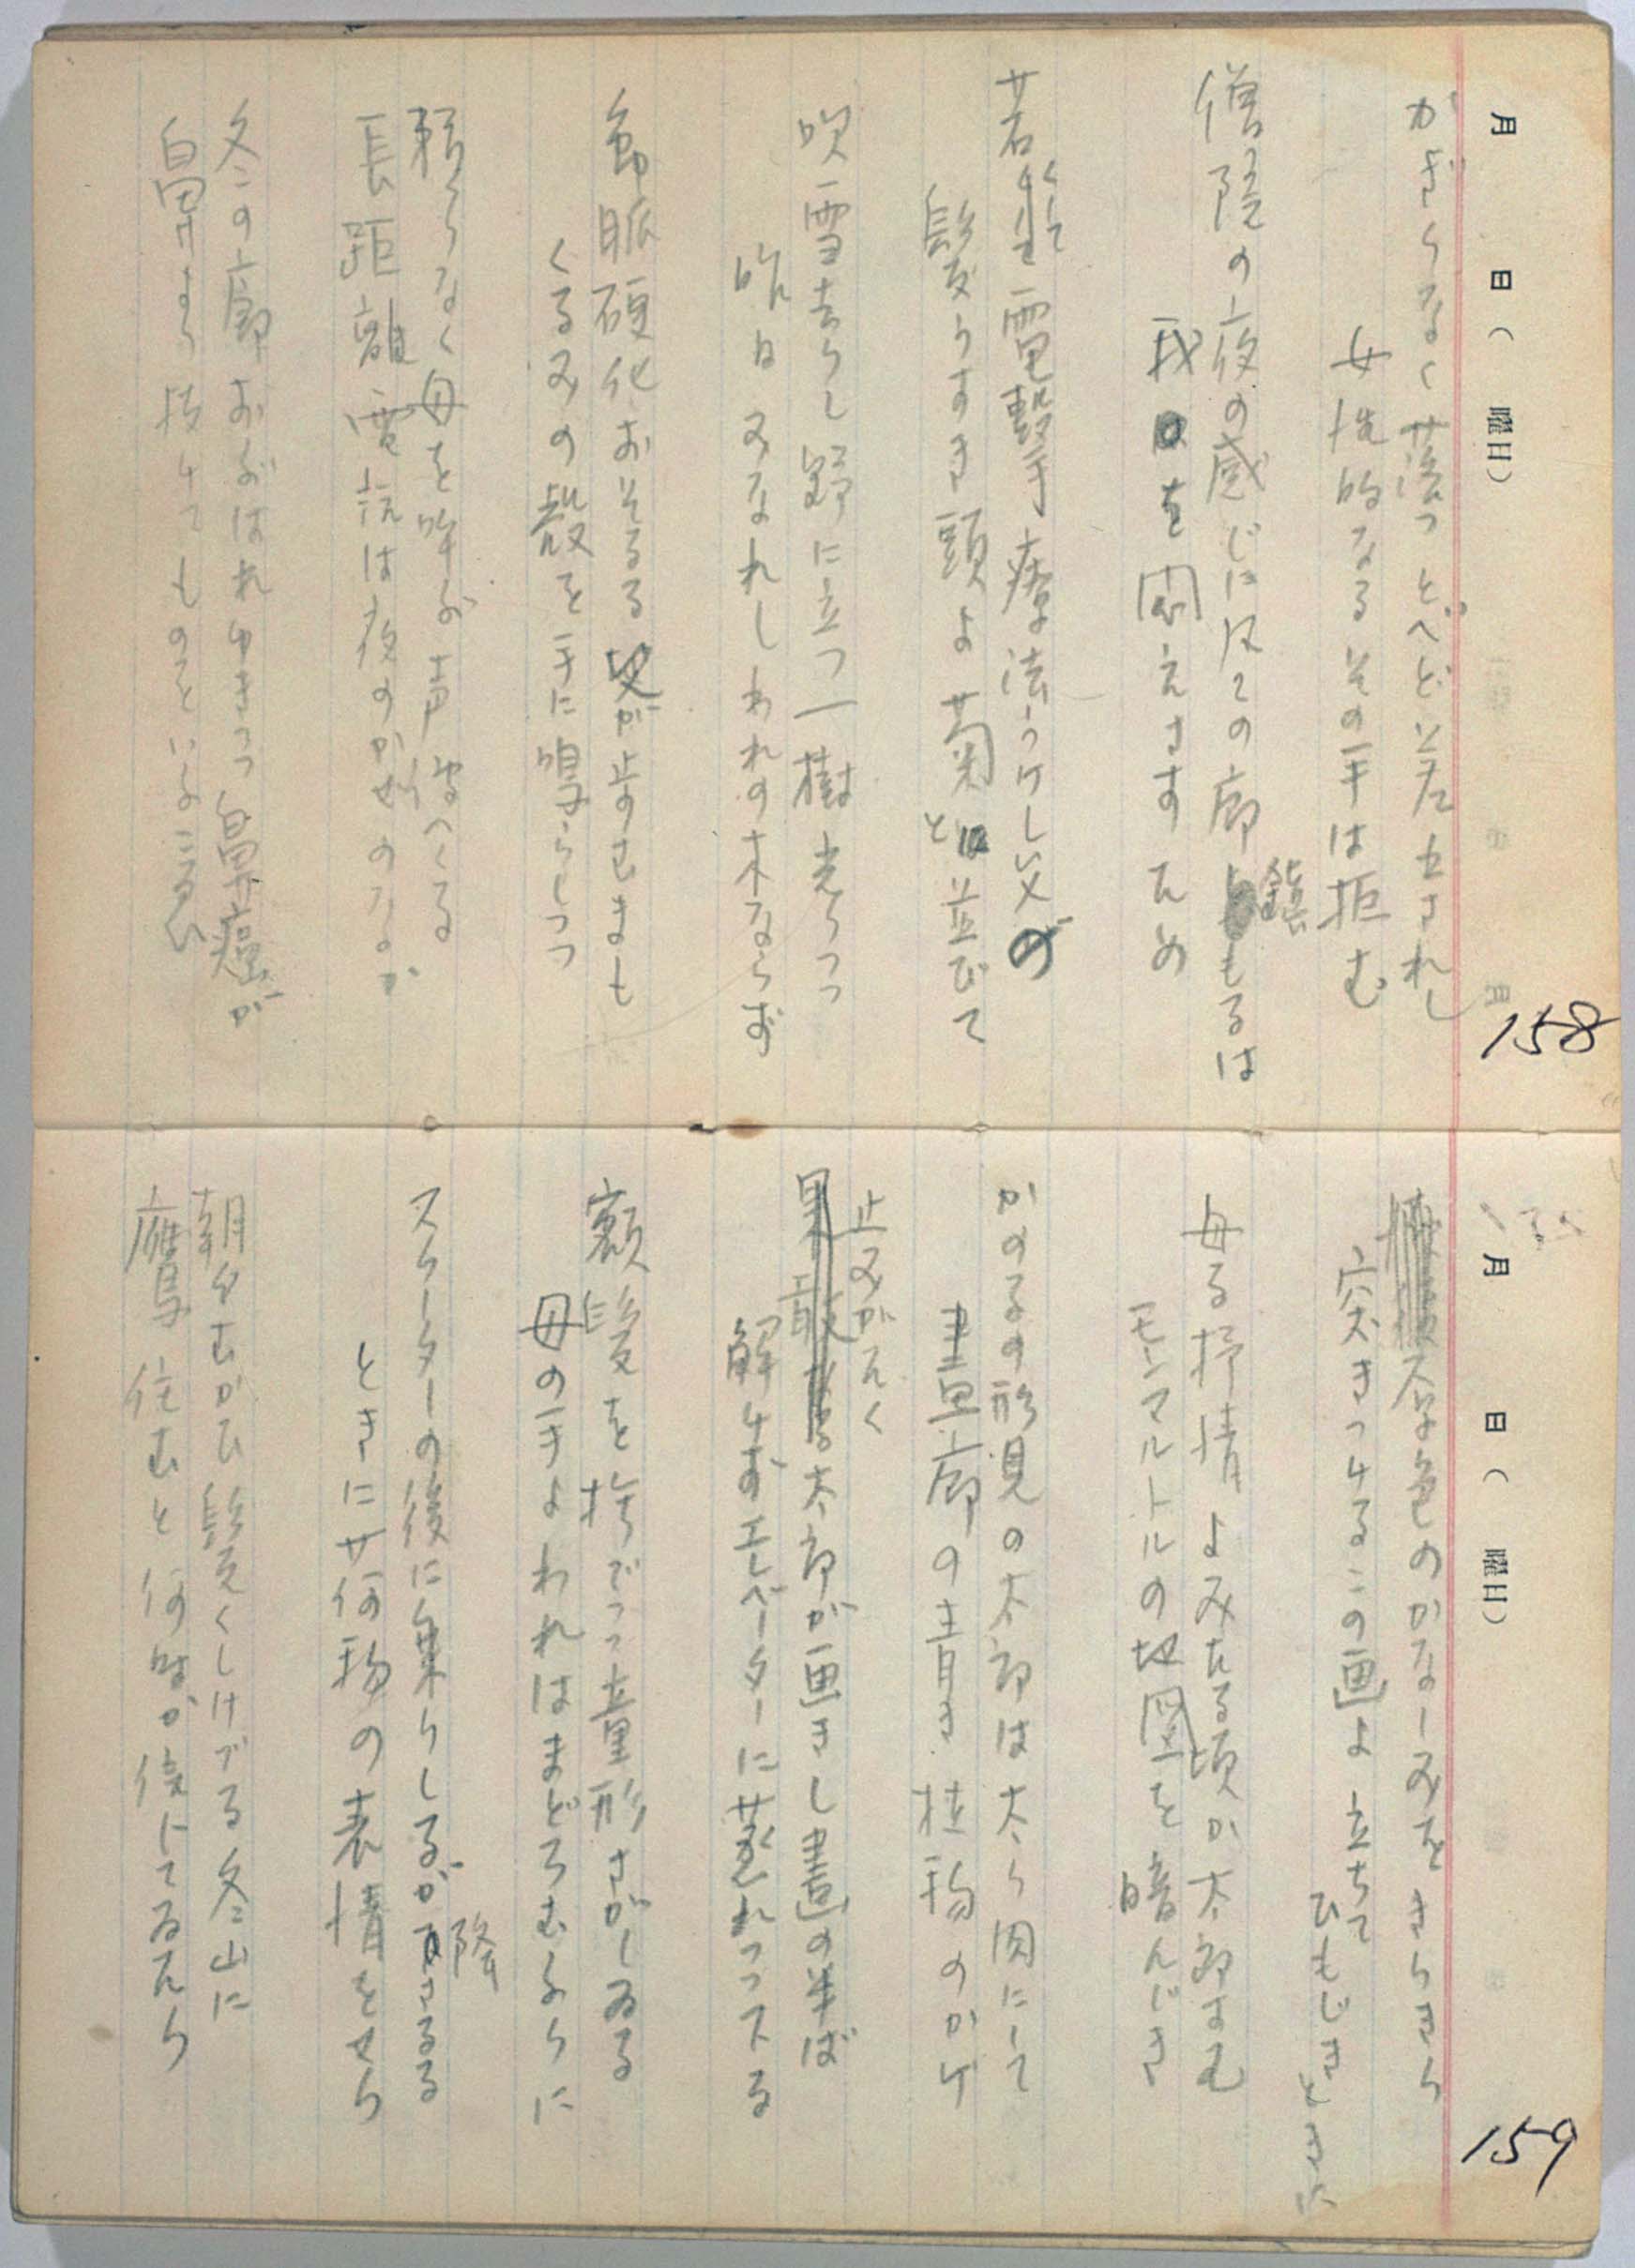 月 日( 曜日)
158
かぎりなく蔭つどへど差出されし
女性的なるその手は拒む
僧院の夜の感じに反ての廊鎮もるは
我を悶えさすため
若くして電撃療法うけし父の
髪うすき頭よ菊と並びて
吹雪去りし野に立つ一樹光りつつ
昨日みなれしわれの木ならず
動脈硬化おそるる父が歩のむまも
くるみの殻を手に鳴らしつつ
頼りなく母を呼ぶ声
長距離電話は夜のかぜのなか
冬の廊おぶはれゆきつつ鼻癌が
鼻より
月 日( 曜日)
159
杏色のかなしみをきらきら
突きつけるこの画よ立ちて
ひもじきときに
母る抒情よみたる頃か太郎はむ
モンマルトルの地図を暗んじき
かのるの形見の太郎は太り肉にして
畫廊の青き植物のかげ
止みがたく
果敢なる太郎が画きし畫の半ば
解けずエレベーターに蒸れつつ下る
額髪を撫でつつ童形さがしゐる
母の手よわれはまどろむふりに
スケーターの後に乗りしるが降さるる
ときに荷物の表情をせり
朝夕むかひ髪くしけづる冬山に
鷹住むと何か信じてゐたり